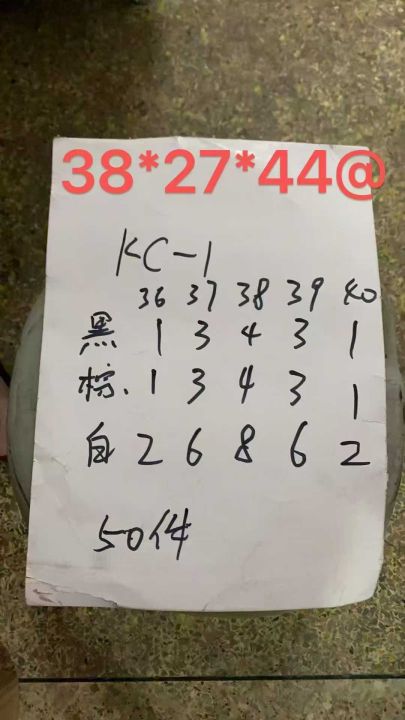 38*27*44@
KC-1
36 37 38 39 40
黑 1 3 4 3 1
棕. 1 3 4 3 1
白 2 6 8 6 2
50件